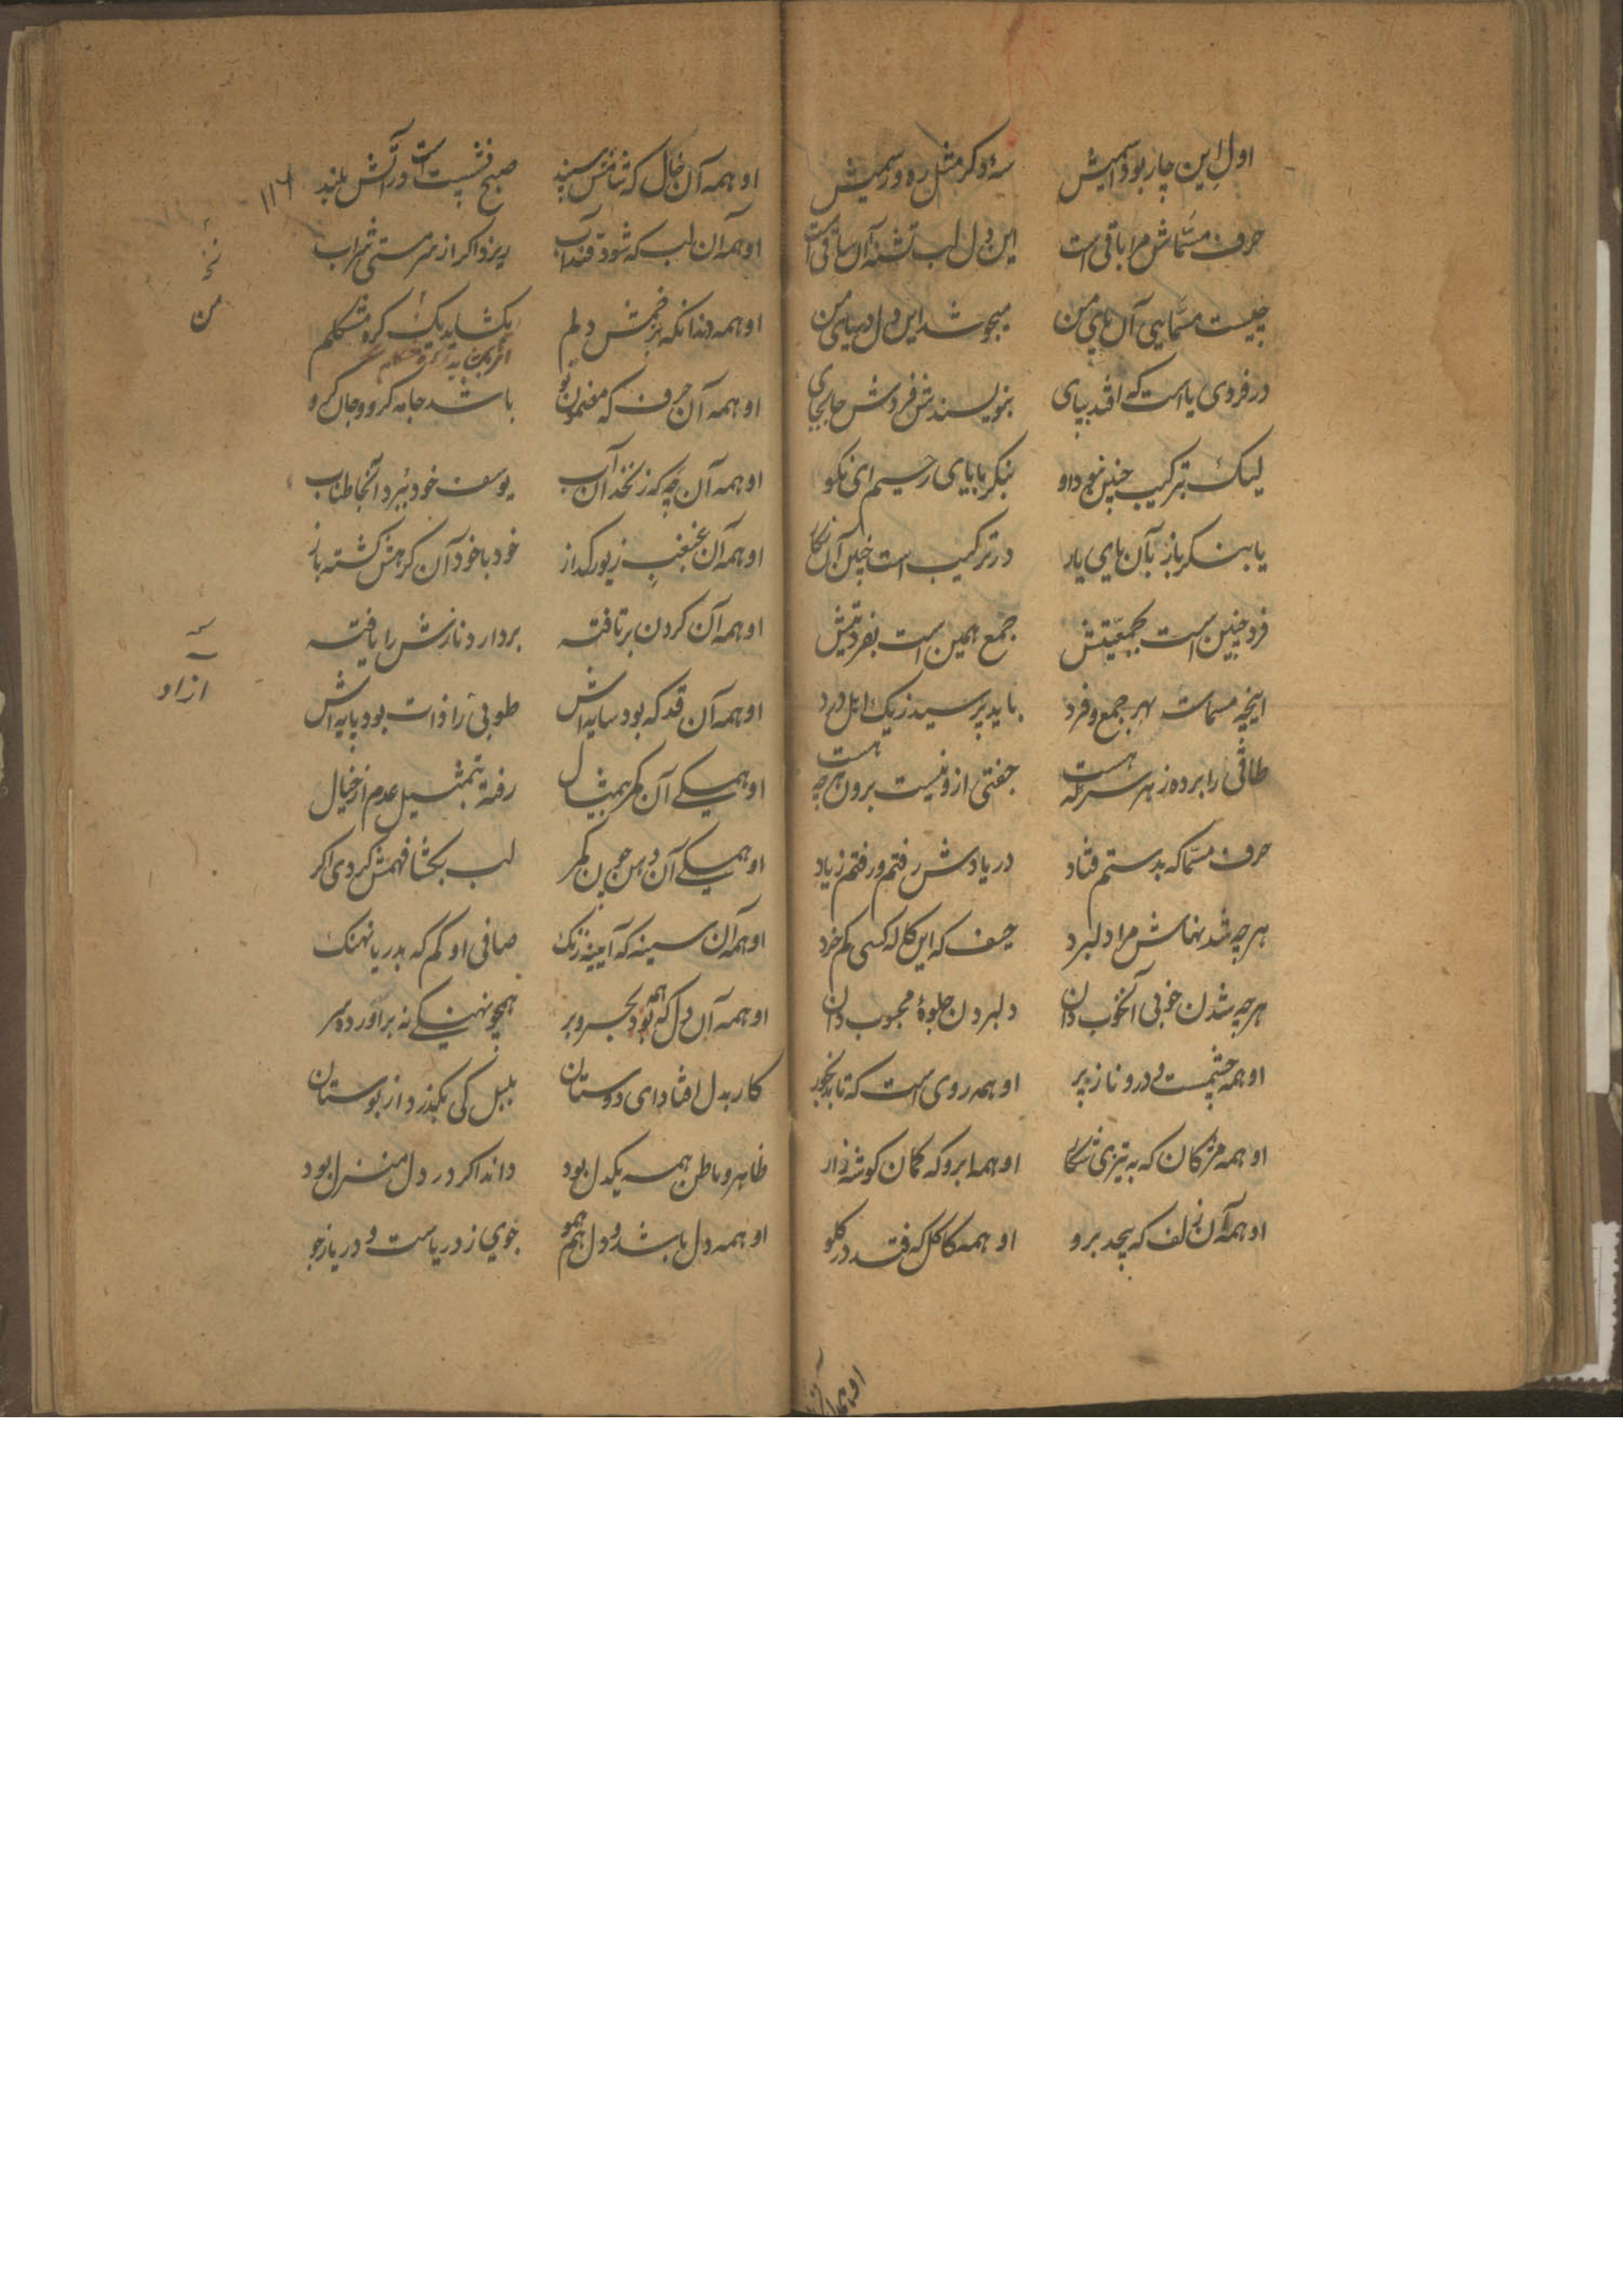 اول این چار بود اسمیش سه دکر مثل ره و رسمیش
حرف مسماش مرا باقی است این دل لب تشنه آن ساقی است
چیست مسمایی آن یای من میجوشد این دل دریای من
در فردی یا است که افتد بپای بنویسندش فردش جابجای
لیک بترکیب چنین بود او بنکر بابای رحیم ای نکو
یا بنکر باز بآن یای یار در ترکیب است چنین آن نکار
فرد چنین است بجمعیتش جمع همین است بفردیتش
اینچه مسمات بهر جمع و فرد باید پرسید ز یک اهل درد
طاقی را برده ز هر سر که هست جفتی ازو نیست برون هرچه هست
حرف مسما که بدستم فتاد در یادش رفتم و رفتم ز یاد
هرچه شد نهاش مرا دلبرد حیف که این کاله کسی کم خرد
هرچه شدن خوبی آنخوب دان دلبردن جلوهٔ محبوب دان
او همه چشمست و درو ناز پر او همه روی است که تابد بخور
او همه مژکان که به تیزی شکار او همه ابرو که کمان کوشه دار
او همه آن زلف که پیچد برو او همه کاکل که فتد در کلو
او همه آن
۱۱۶
او همه آن خال که شامش سپند صبح نشست است و رآتش بلند
او همه آن لب که شود قند آب ریزد اکر از سر مستی شراب
او همه دندانکه بزخمش دلم یکشاید یک کره مشکلم
او همه آن حرف که مضمون نو باشد جامه کرو و جان کرو
او همه آن چه که زنخدان آب یوسف خود نبرد آنجا طناب
او همه آن غبغب زیور کداز خود باخود آن کرهش کشته باز
او همه آن کردن برتافته بردارد نازش را یافته
او همه آن قد که بود سایه اش طوبی را ذات بود پایه اش
او همیکی آن کمر بیمثال رفته بتمثیل عدم از خیال
او همیکی آن دهن چون کمر لب بکشا فهمش کردی اکر
او همه آن سینه که آیینه زنک صافی او کم که بدریا نهنک
او همه آن دل که بود بحر و بر همچو نهنکی نه برآورده سر
کار بدل افتاد ای دوستان بلبل کی بکذرد از بوستان
ظاهر و باطن همه یکدل بود داند اکر در دل منزل بود
او همه دل باشد و دل هم همو جوی ز دریاست و دریا ز جو
من
ازاد